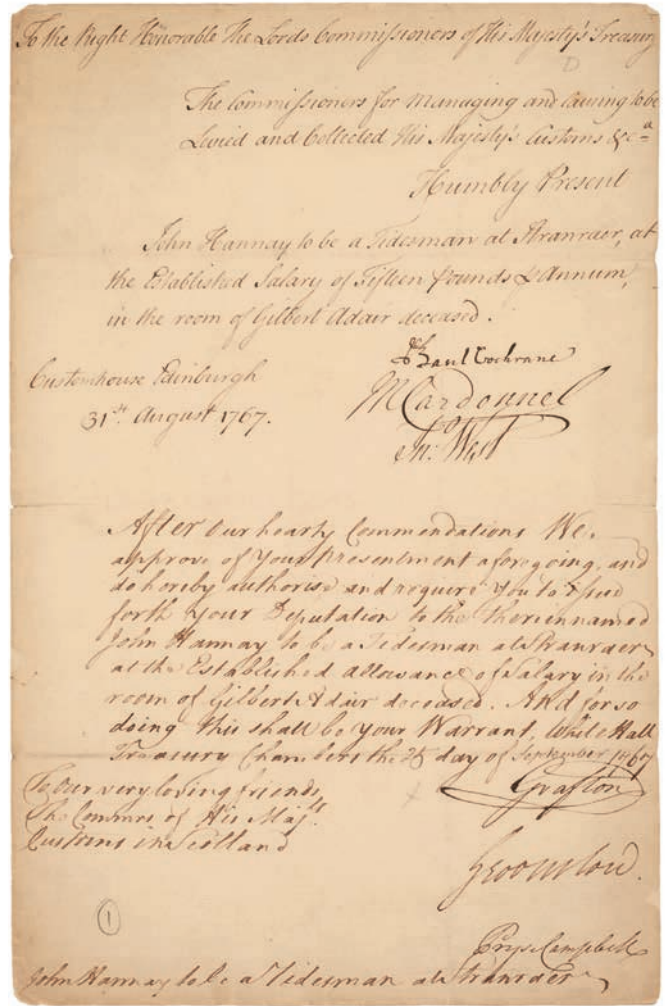 To the Right Honorable The Lords Commissioners of His Majesty's Treasury
D
The Commissioners for Managing and causing to be
Levied and Collected His Majesty's Customs &c.a
Humbly Present
John Hannay to be a Tidesman at Stranraer, at
the Established Salary of Fifteen Pounds ⅌ Annum,
in the room of Gilbert Adair deceased.
Basil Cochrane
Customhouse Edinburgh
M Cardonnel
31st. August 1767.
Jn: West
After Our hearty Commendations We
approve of Your Presentment aforegoing, and
do hereby authorise and require You to issue
forth Your Deputation to the therein named
John Hannay to be a Tidesman at Stranraer
at the Established allowance of Salary in the
room of Gilbert Adair deceased. And for so
doing this shall be Your Warrant, White Hall
Treasury Chambers the 25 day of September 1767
To Our very loving friends
Grafton
The Commrs of His Maj.ts
Customs in Scotland
1
Pryse Campbell
John Hannay to be a Tidesman at Stranraer